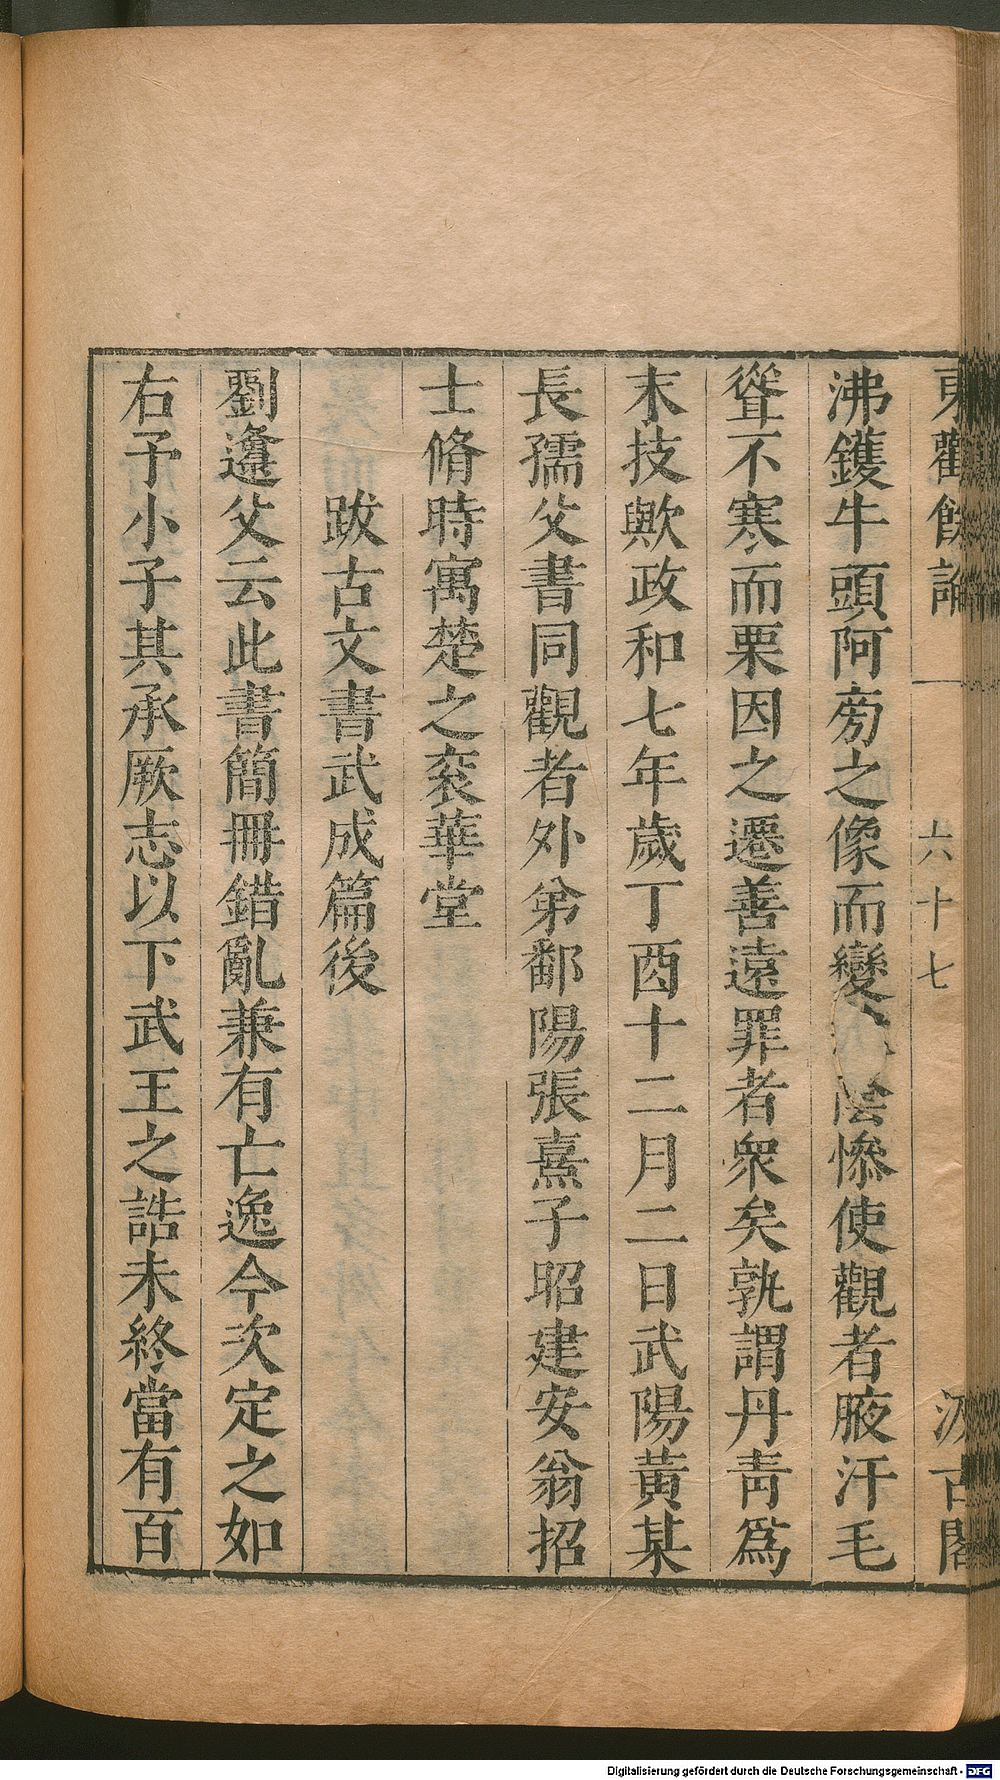 東觀餘論 六十七 汲古閣
沸鑊牛頭阿旁之像而變 陰慘使觀者腋汗毛
聳不寒而栗因之遷善遠罪者衆矣孰謂丹靑爲
末技歟政和七年歲丁酉十二月二日武陽黃某
長孺父書同觀者外弟鄱陽張熹子昭建安翁招
士脩時寓楚之袞華堂
跋古文書武成篇後
劉邍父云此書簡冊錯亂兼有亡逸今次定之如
右予小子其承厥志以下武王之誥未終當有百
Digitalisierung gefördert durch die Deutsche Forschungsgemeinschaft - DFG